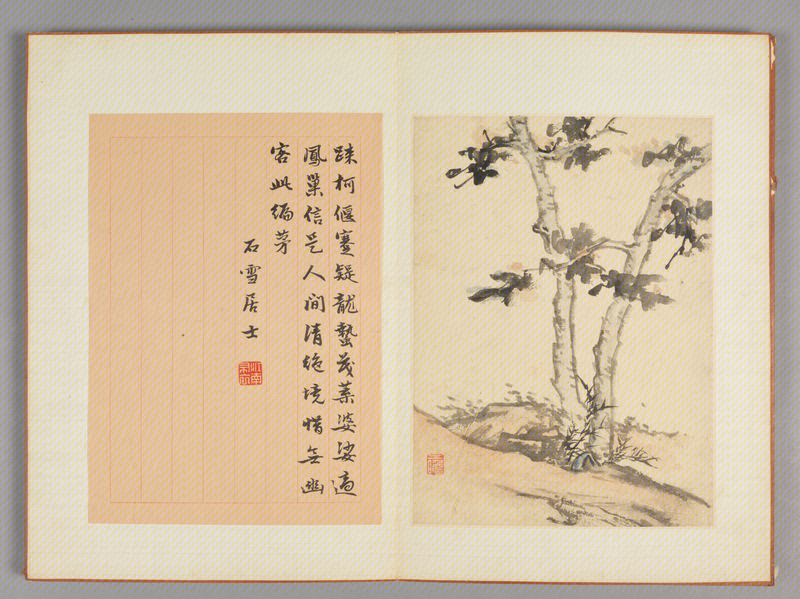 踈柯偃蹇疑龍蟄茂葉婆娑適
鳳巢信是人间清絶境惜無幽
客此编茅
石雪居士